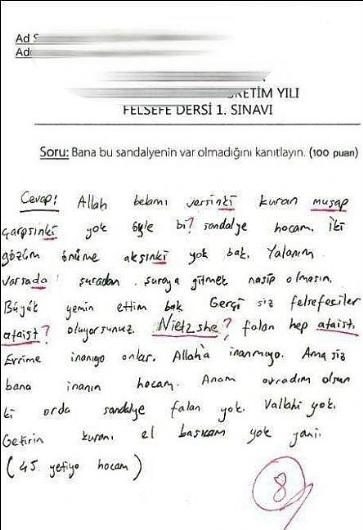 Ad S
Ad:
RETİM YILI
FELSEFE DERSİ 1. SINAVI
Soru: Bana bu sandalyenin var olmadığını kanıtlayın. (100 puan)
Cevap: Allah belamı versinki kuran musap
çarpsınki yok öyle bi? sandalye hocam. iki
gözüm önüme aksınki yok bak. Yalanım
varsada şuradan şuraya gitmek nasip olmasın.
Büyük yemin ettim bak Gerçi siz felsefeciler
ataist? oluyorsunuz. Nietzshe? falan hep ataist.
Evrime inanıyo onlar. Allah'a inanmıyo. Ama siz
bana inanın hocam. Anam avradım olsun
ki orda sandalye falan yok. Vallahi yok.
Getirin kuranı el basıcam yok yani.
(45 yetiyo hocam)
8